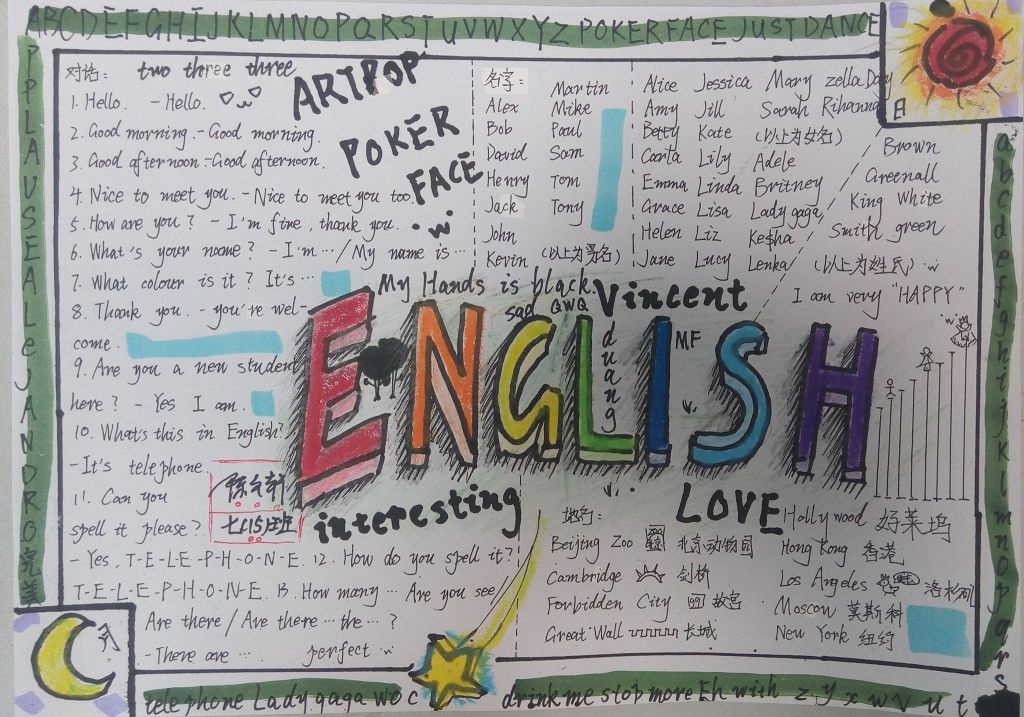 ABCDEFGHIJKLMNOPQRSTUVWXYZ POKERFACE JUST DANCE
PPLAUSEALeJANDRO完美
对话：
two three three
1. Hello. - Hello.
2. Good morning. - Good morning.
3. Good afternoon. - Good afternoon.
4. Nice to meet you. - Nice to meet you too.
5. How are you? - I'm fine, thank you.
6. What's your name? - I'm ··· / My name is ···
7. What colour is it? It's ···
8. Thank you. - you're wel-
come.
9. Are you a new student
here? - Yes I am.
10. What's this in English?
- It's telephone.
11. Can you
spell it please?
- Yes, T-E-L-E-P-H-O-N-E. 12. How do you spell it?
T-E-L-E-P-H-O-N-E. 13. How many ··· Are you see
Are there / Are there ··· the ··· ?
- There are ··· perfect
七(15)班
ARTPOP
POKER
FACE
名字：
Alex
Bob
David
Henry
Jack
John
Kevin
Martin
Mike
Paul
Sam
Tom
Tony
(以上为男名)
Alice Jessica Mary zella Day
Amy Jill Sarah Rihanna
Betty Kate (以上为女名)
Carla Lily Adele
Emma Linda Britney
Grace Lisa Lady gaga
Helen Liz Ke$ha
Jane Lucy Lenka
日
Brown
Greenall
King White
Smith green
(以上为姓氏)
I am very "HAPPY"
My Hands is black.
sad QWQ
Vincent
duang
MF
ENGLISH
interesting
LOVE
地名：
Beijing Zoo 北京动物园
Cambridge 剑桥
Forbidden City 故宫
Great Wall 长城
Hollywood 好莱坞
Hong Kong 香港
Los Angeles 洛杉矶
Moscow 莫斯科
New York 纽约
月
telephone Lady gaga woc
drink me stop more Eh with z y x w v u t
abcdefghijklmnopqrs